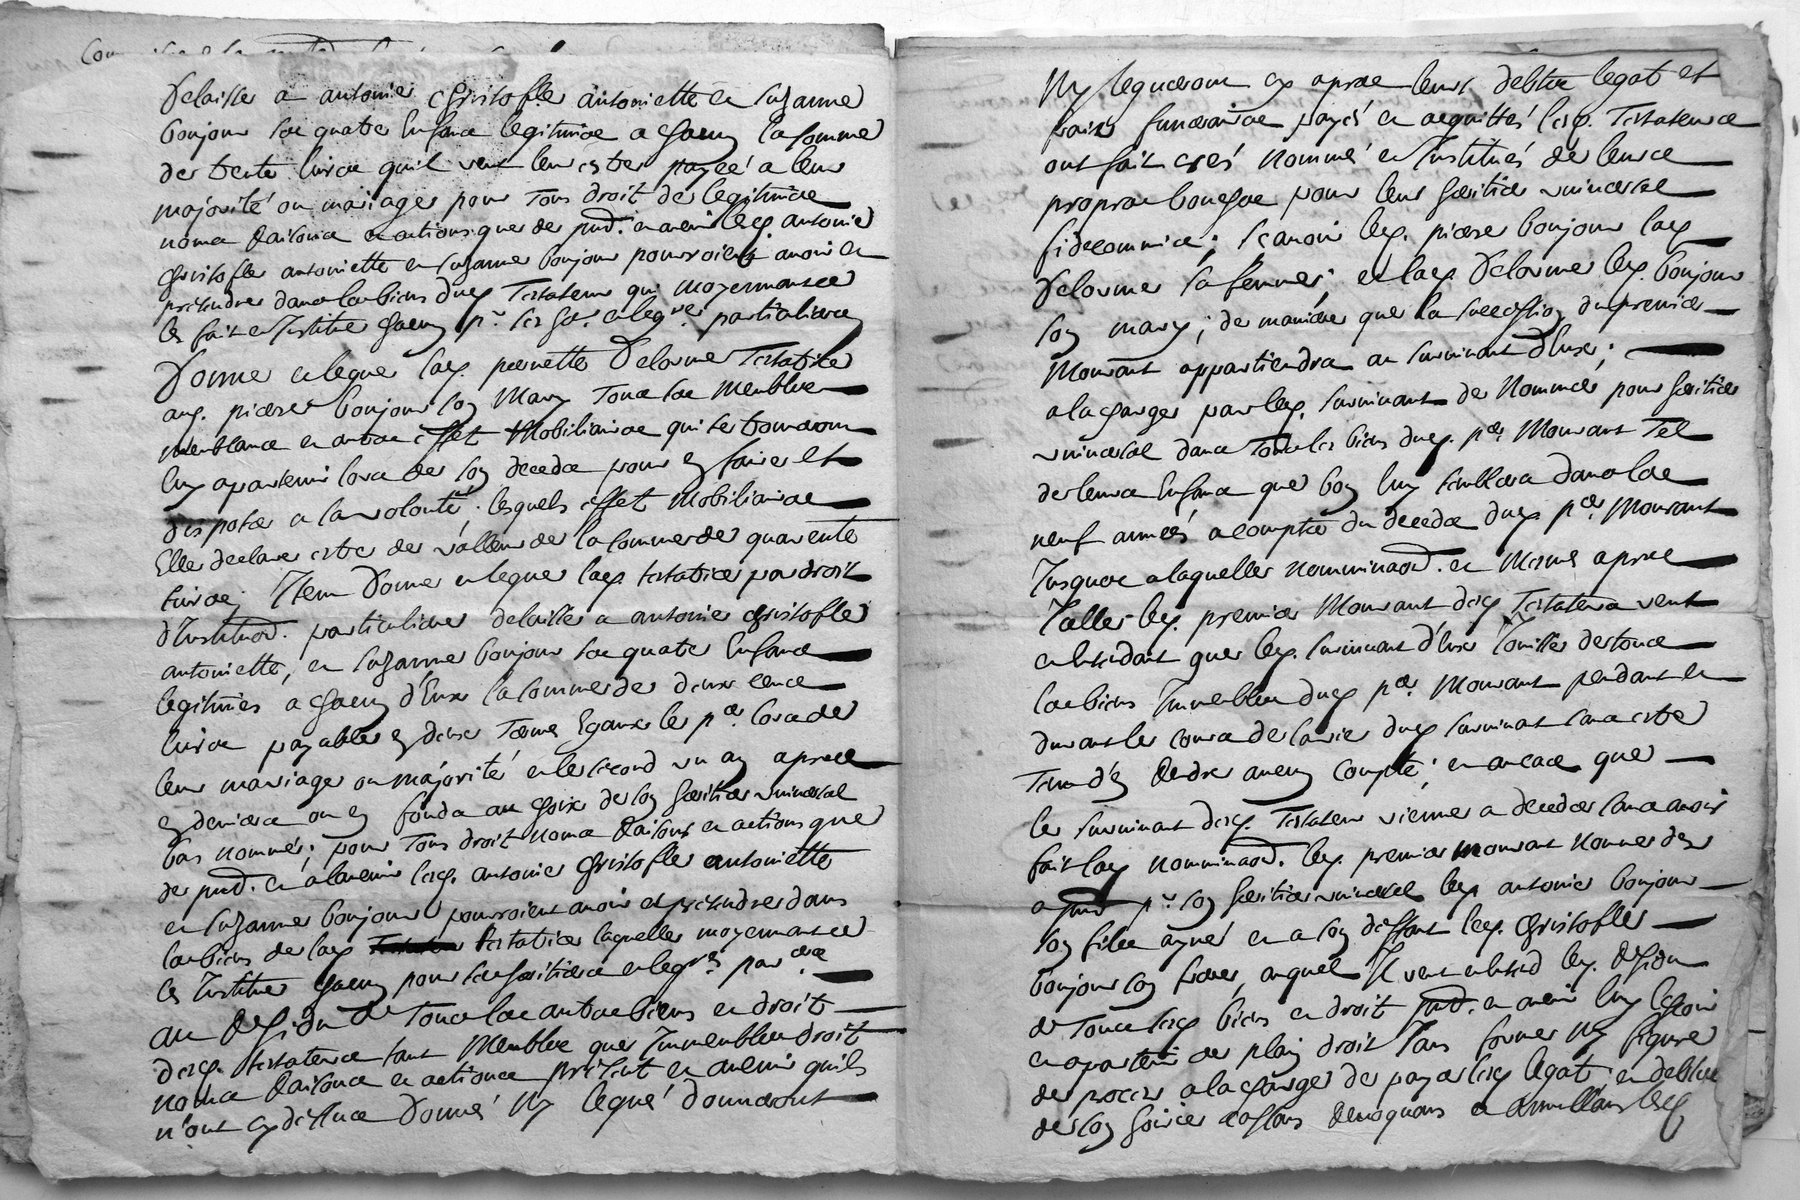 delaisse a antoine christofle antoiniette et suzanne
bonjour ses quatre enfans legitimes a chacun la somme
de trente livres quil veut leur estre payée a leur
majorité ou mariage pour tous droit de legitime
noms raisons et actions que de pnt. et avenir lesd. antoine
christofle antoiniette et suzanne bonjour pourroient avoir et
pretendre dans les biens dud. Testateur qui moyennant ce
les fait et Institue chacun pr. ses her. et legres. particuliers
Donne et legue lad. pernette Delorme Testatrice
aud. pierre bonjour son mary Tous les meubles
meublans et autres effet Mobiliaires qui se trouveront
luy apartenir lors de son deceds pour en faire et
disposer a sa volonté, lesquels effet mobiliaires
Elle declare estre de valleur de la somme de quarente
livres, Item Donne et legue lad. testatrice par droit
d'Institution. particuliere delaisse a antoine christofle
antoiniette, et suzanne bonjour ses quatre Enfans
legitimes a chacun d'Eux la somme de deux cens
livres payables en deux termes Egaux le per. lors de
leur mariage ou majorité et le second un an apres
en deniers ou en fonds au choix de son heritier universel
bas nommé; pour tous droit noms raisons et actions que
de pnt. et alavenir lesd. antoine christofle antoiniette
et suzanne bonjour pourroient avoir et pretendre dans
les biens de lad. testatrice laquelle moyennant ce
les Institue chacun pour ses heritiers et legres. parers
au Residu de Tous les autres biens et droit
desd. testateurs tant Meubles que Immeubles droit
noms raisons et actions present et avenir quils
n'ont cy dessus Donné ny legué donneront
Ny legueront cy apres leurs debtes legat et
frais funeraires payés et acquittés lesd. Testateurs
ont fait créé nommé et Institués de leurs
propres bouches pour leur heritier universel
fideicommis; sçavoir led. pierre bonjour lad.
Delorme sa femme; et lad. Delorme led. bonjour
son mary; de maniere que la succession du premier
Mourant appartiendra au survivant d'Eux;
a la charge par led. survivant de Nommer pour heritier
universel dans Tous les biens dud. per. Mourant Tel
de leurs Enfans que bon luy semblera dans les
neuf années a compter du deceds dud. per. Mourant
Jusques a laquelle nomination. et Mesme apres
Icelle led. premier Mourant desd. Testateurs veut
et entendant que led. survivant d'Eux Jouisse de tous
les biens Immeubles dud. per. Mourant pendant et
durant le cours de la vie dud. survivant sans estre
Tenu d'en Rendre aucun compte; et au cas que
le survivant desd. Testateurs vienne a deceder sans avoir
fait lad. nomination. led. premier mourant nomme des
a pnt pr. son heritier universel led. antoine bonjour
son fils ayné et a son deffaut led. christofle
bonjour son frere, auquel Il veut et entend led. Residu
de Tous lesd. biens et droit pnt. et avenir luy
et apartenir de plain droit sans former ny figure
de proces a la charge de payer lesd. legat et debtes
de son hoirie cassans Revoquans et annullans lesd.